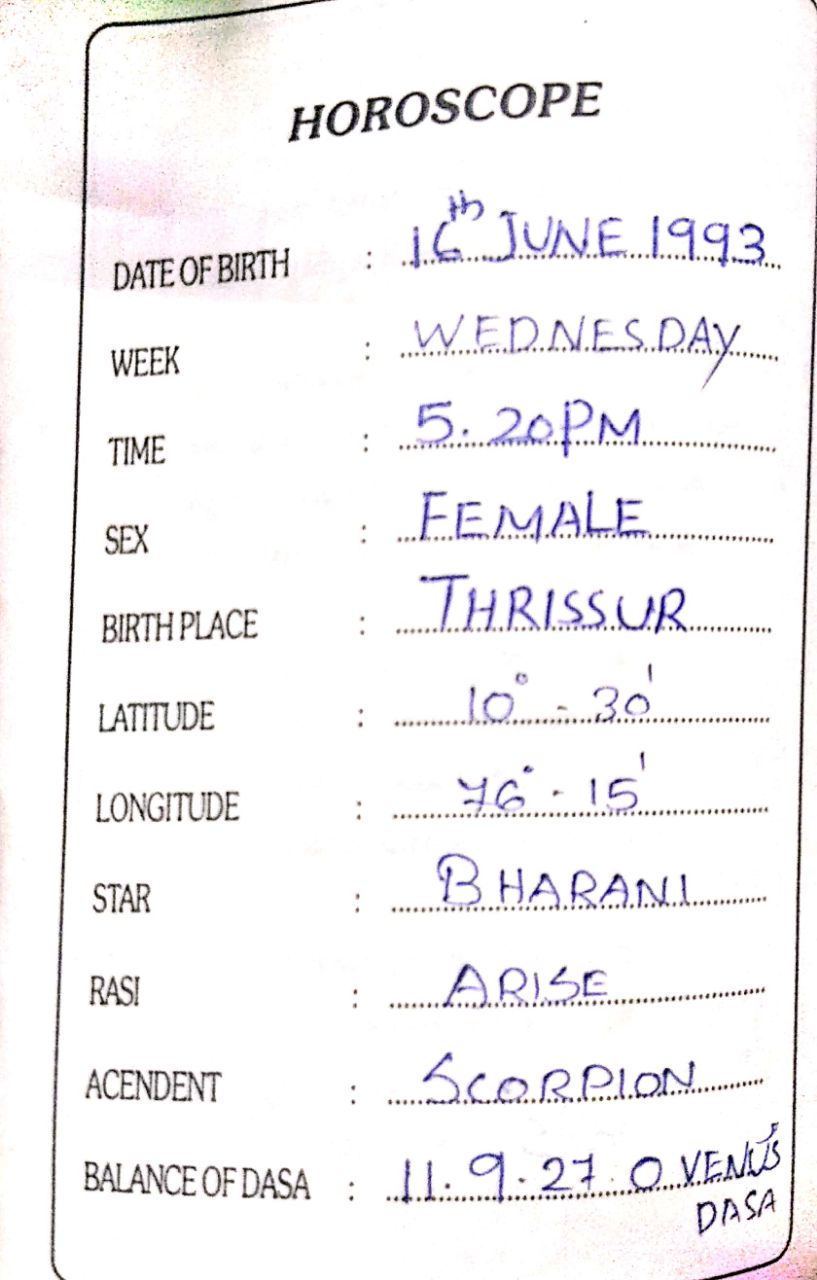 HOROSCOPE
DATE OF BIRTH : 16th JUNE 1993
WEEK : WEDNESDAY
TIME : 5.20PM
SEX : FEMALE
BIRTH PLACE : THRISSUR
LATITUDE : 10° - 30'
LONGITUDE : 76° - 15'
STAR : BHARANI
RASI : ARISE
ACENDENT : SCORPION
BALANCE OF DASA : 11.9.27.0 VENUS
DASA